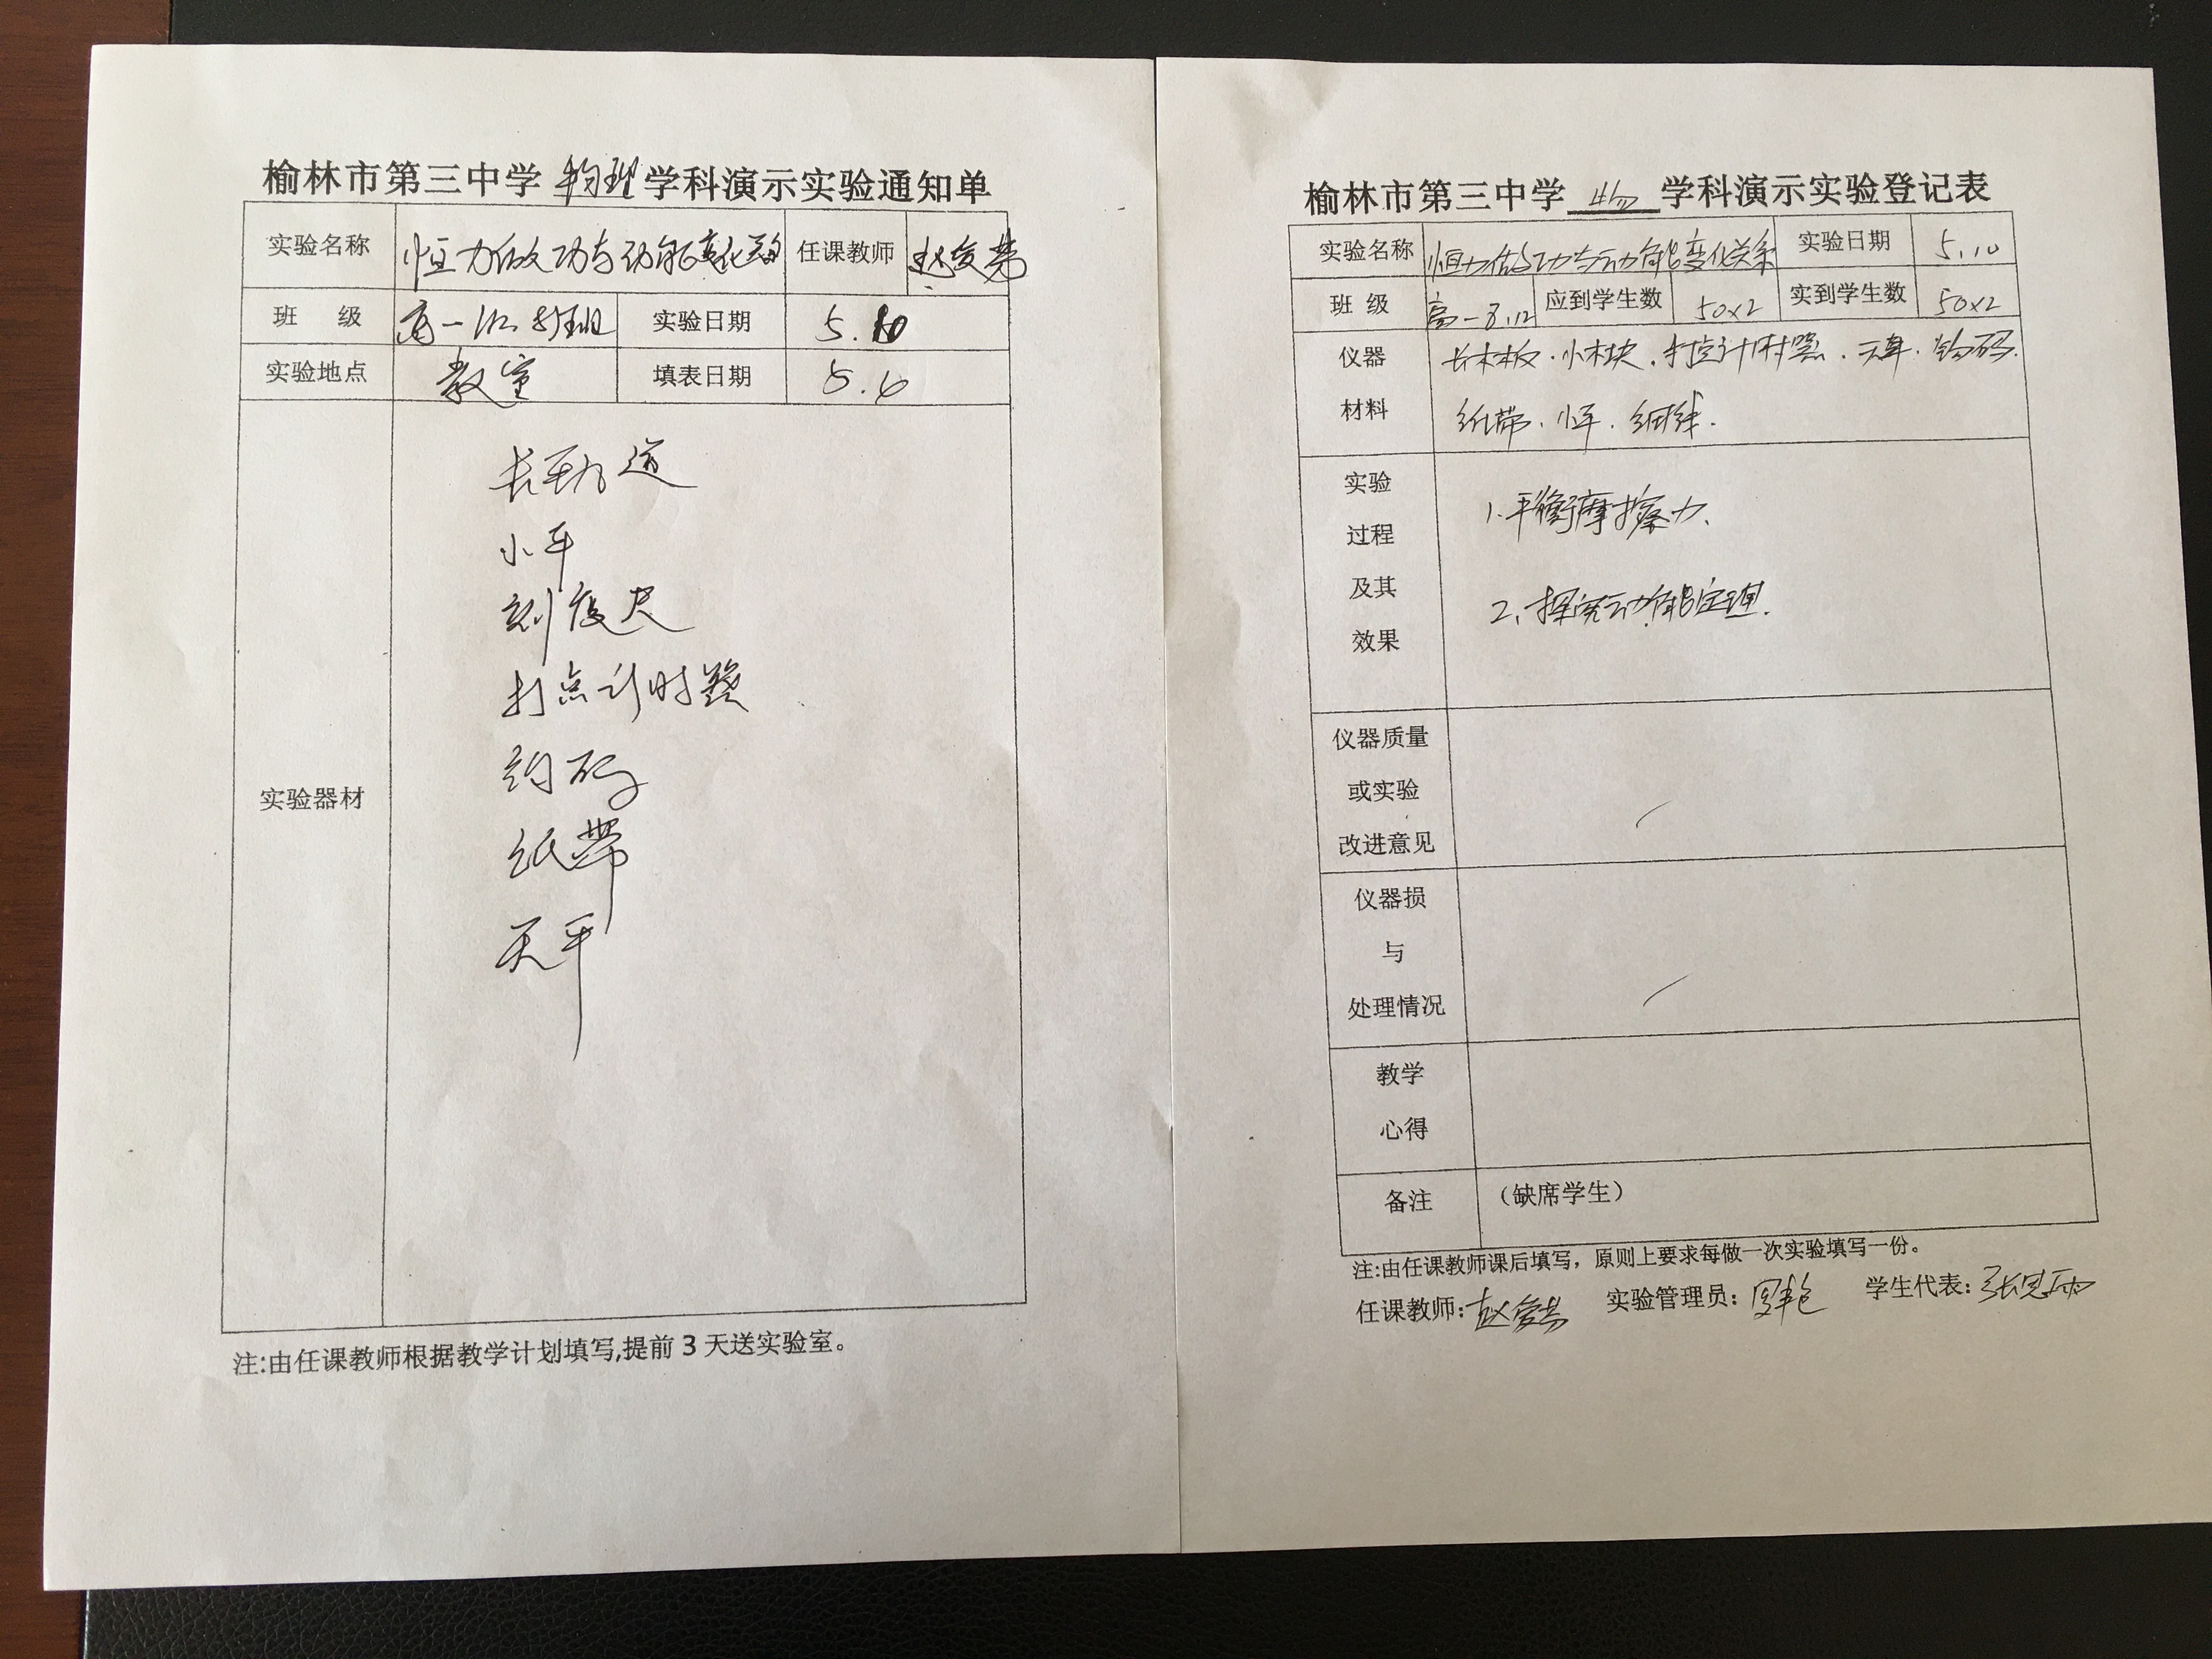 榆林市第三中学 物理 学科演示实验通知单
实验名称 恒力做功与动能变化关系 任课教师
班 级 高一 12. 8班 实验日期 5.10
实验地点 教室 填表日期 5.6
实验器材
小车
刻度尺
打点计时器
钩码
纸带
天平
注:由任课教师根据教学计划填写,提前 3 天送实验室。
榆林市第三中学 物 学科演示实验登记表
实验名称 恒力做功与动能变化关系 实验日期 5.10
班 级 高一8.12 应到学生数 50x2 实到学生数 50x2
仪器 长木板.小木块.打点计时器.天平.钩码.
材料 纸带.小车.细线.
实验
过程
及其
效果
1.平衡摩擦力、
2、探究动能定理.
仪器质量
或实验
改进意见
仪器损
与
处理情况
教学
心得
备注 （缺席学生）
注:由任课教师课后填写，原则上要求每做一次实验填写一份。
任课教师: 实验管理员: 学生代表: 张思雨